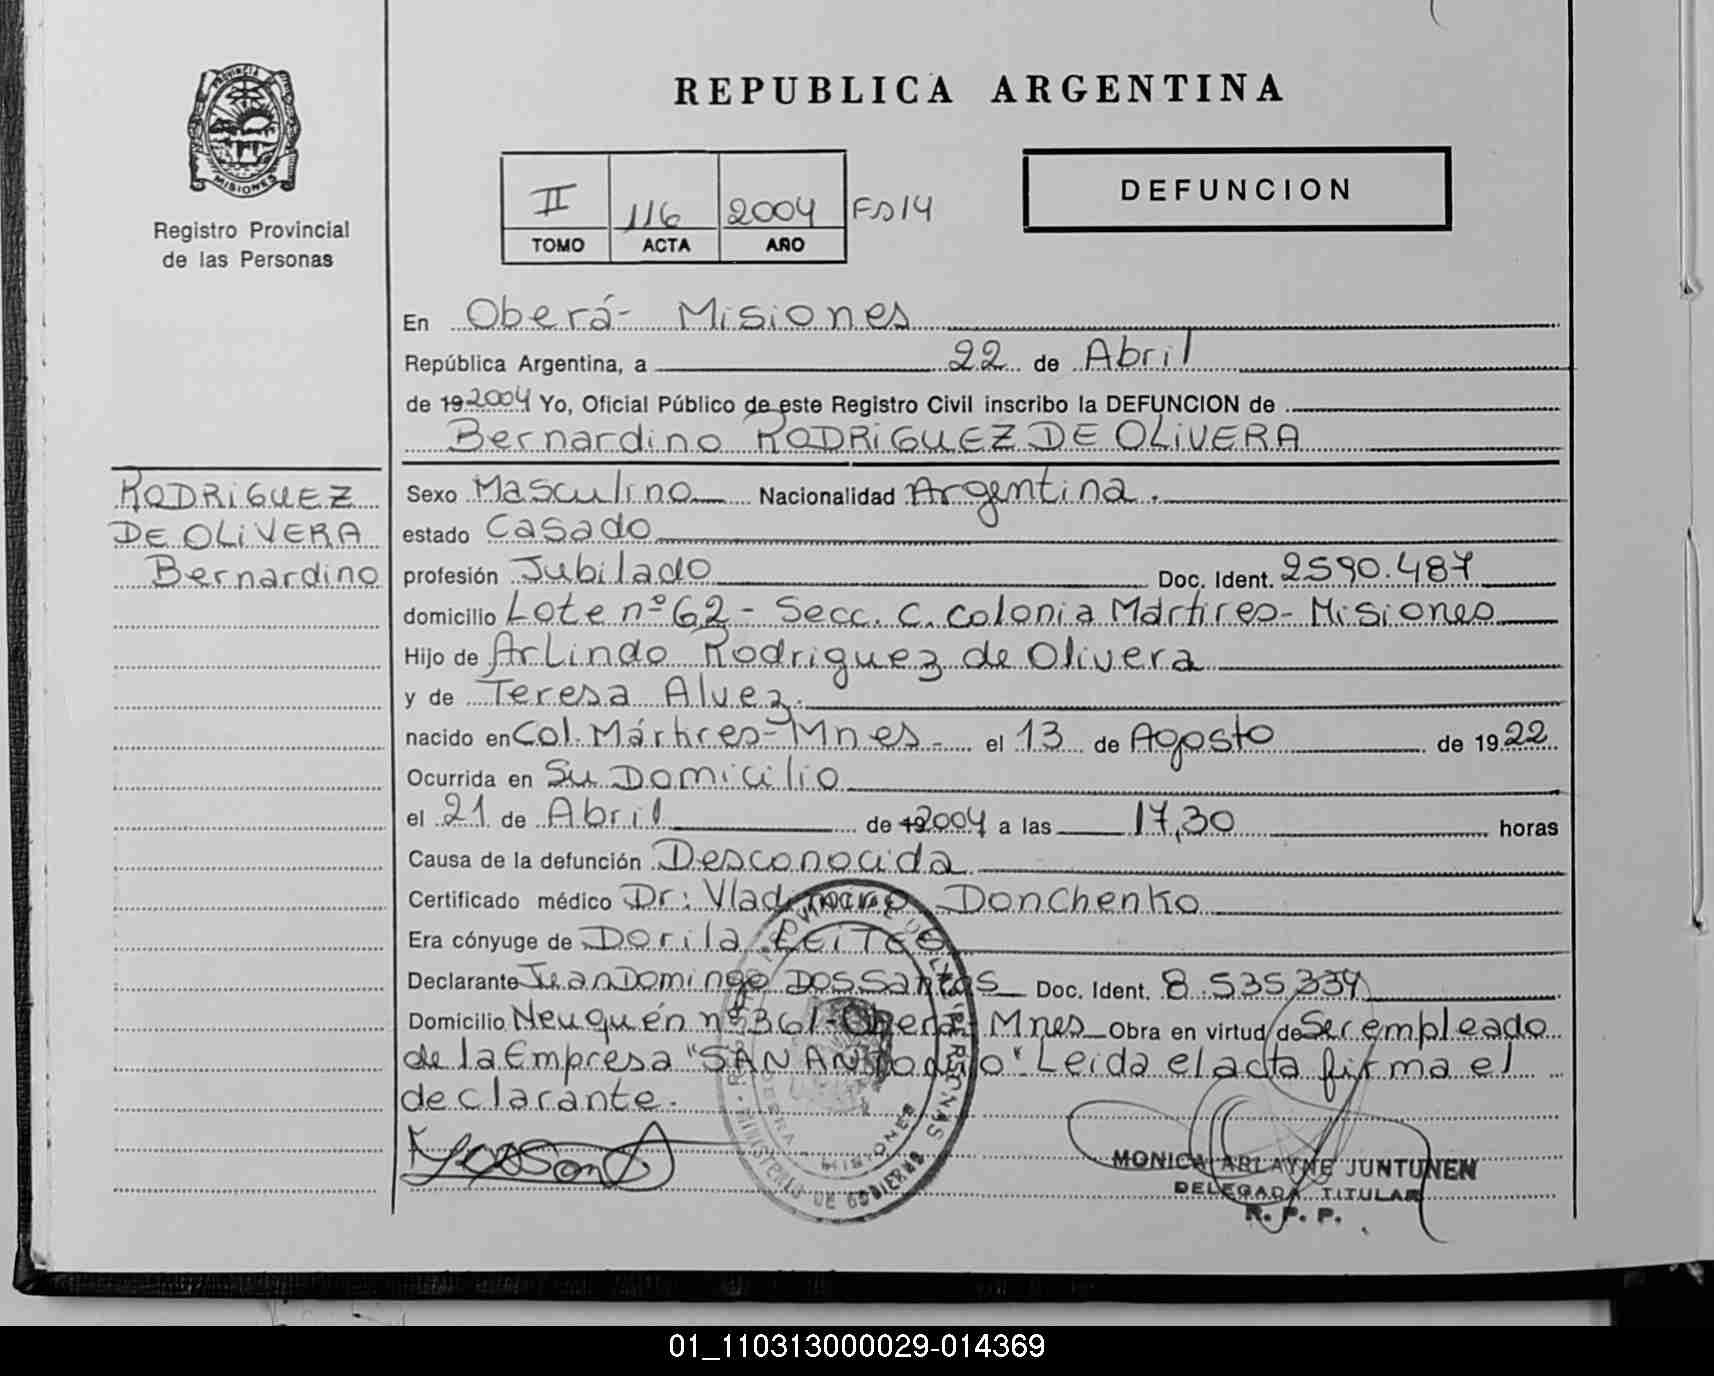 PROVINCIA DE
MISIONES
Registro Provincial
de las Personas
REPUBLICA ARGENTINA
II 116 2004 Fº 14
TOMO ACTA AÑO
DEFUNCION
En Oberá- Misiones
República Argentina, a 22 de Abril
de 19 2004 Yo, Oficial Público de este Registro Civil inscribo la DEFUNCION de
Bernardino RODRIGUEZ DE OLIVERA
RODRIGUEZ
DE OLIVERA
Bernardino
Sexo Masculino Nacionalidad Argentina.
estado Casado
profesión Jubilado Doc. Ident. 2590.487
domicilio Lote nº 62 - Secc. C. Colonia Mártires- Misiones
Hijo de Arlindo Rodriguez de Olivera
y de Teresa Alvez.
nacido en Col. Mártires- Mnes- el 13 de Agosto de 1922
Ocurrida en Su Domicilio
el 21 de Abril de 19 2004 a las 17,30 horas
Causa de la defunción Desconocida
Certificado médico Dr: Vladimiro Donchenko
Era cónyuge de Dorila LEITES
Declarante Juan Domingo Dos Santos Doc. Ident. 8.535.334
Domicilio Neuquén nº 361- Oberá- Mnes Obra en virtud de Ser empleado
de la Empresa "SAN ANTONIO" Leida el acta firma el
declarante.
MONICA ARLAYNE JUNTUNEN
DELEGADA TITULAR
R. P. P.
01_110313000029-014369